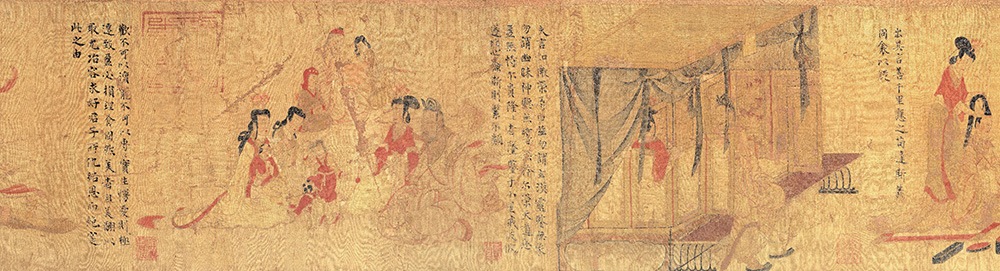 出其言善千里應之苟違斯義
同衾以疑
夫言如微榮辱由茲勿謂玄漠靈鑒無象
勿謂幽昧神聽無響無矜爾榮天道惡
盈無恃爾貴隆隆者墜鑒于小星戒彼攸
遂比心螽斯則繁爾類
歡不可以瀆寵不可以專實生慢愛則極
遷致盈必損理有固然美者自美翩以
取尤冶容求好君子所仇結恩而絕寔
此之由